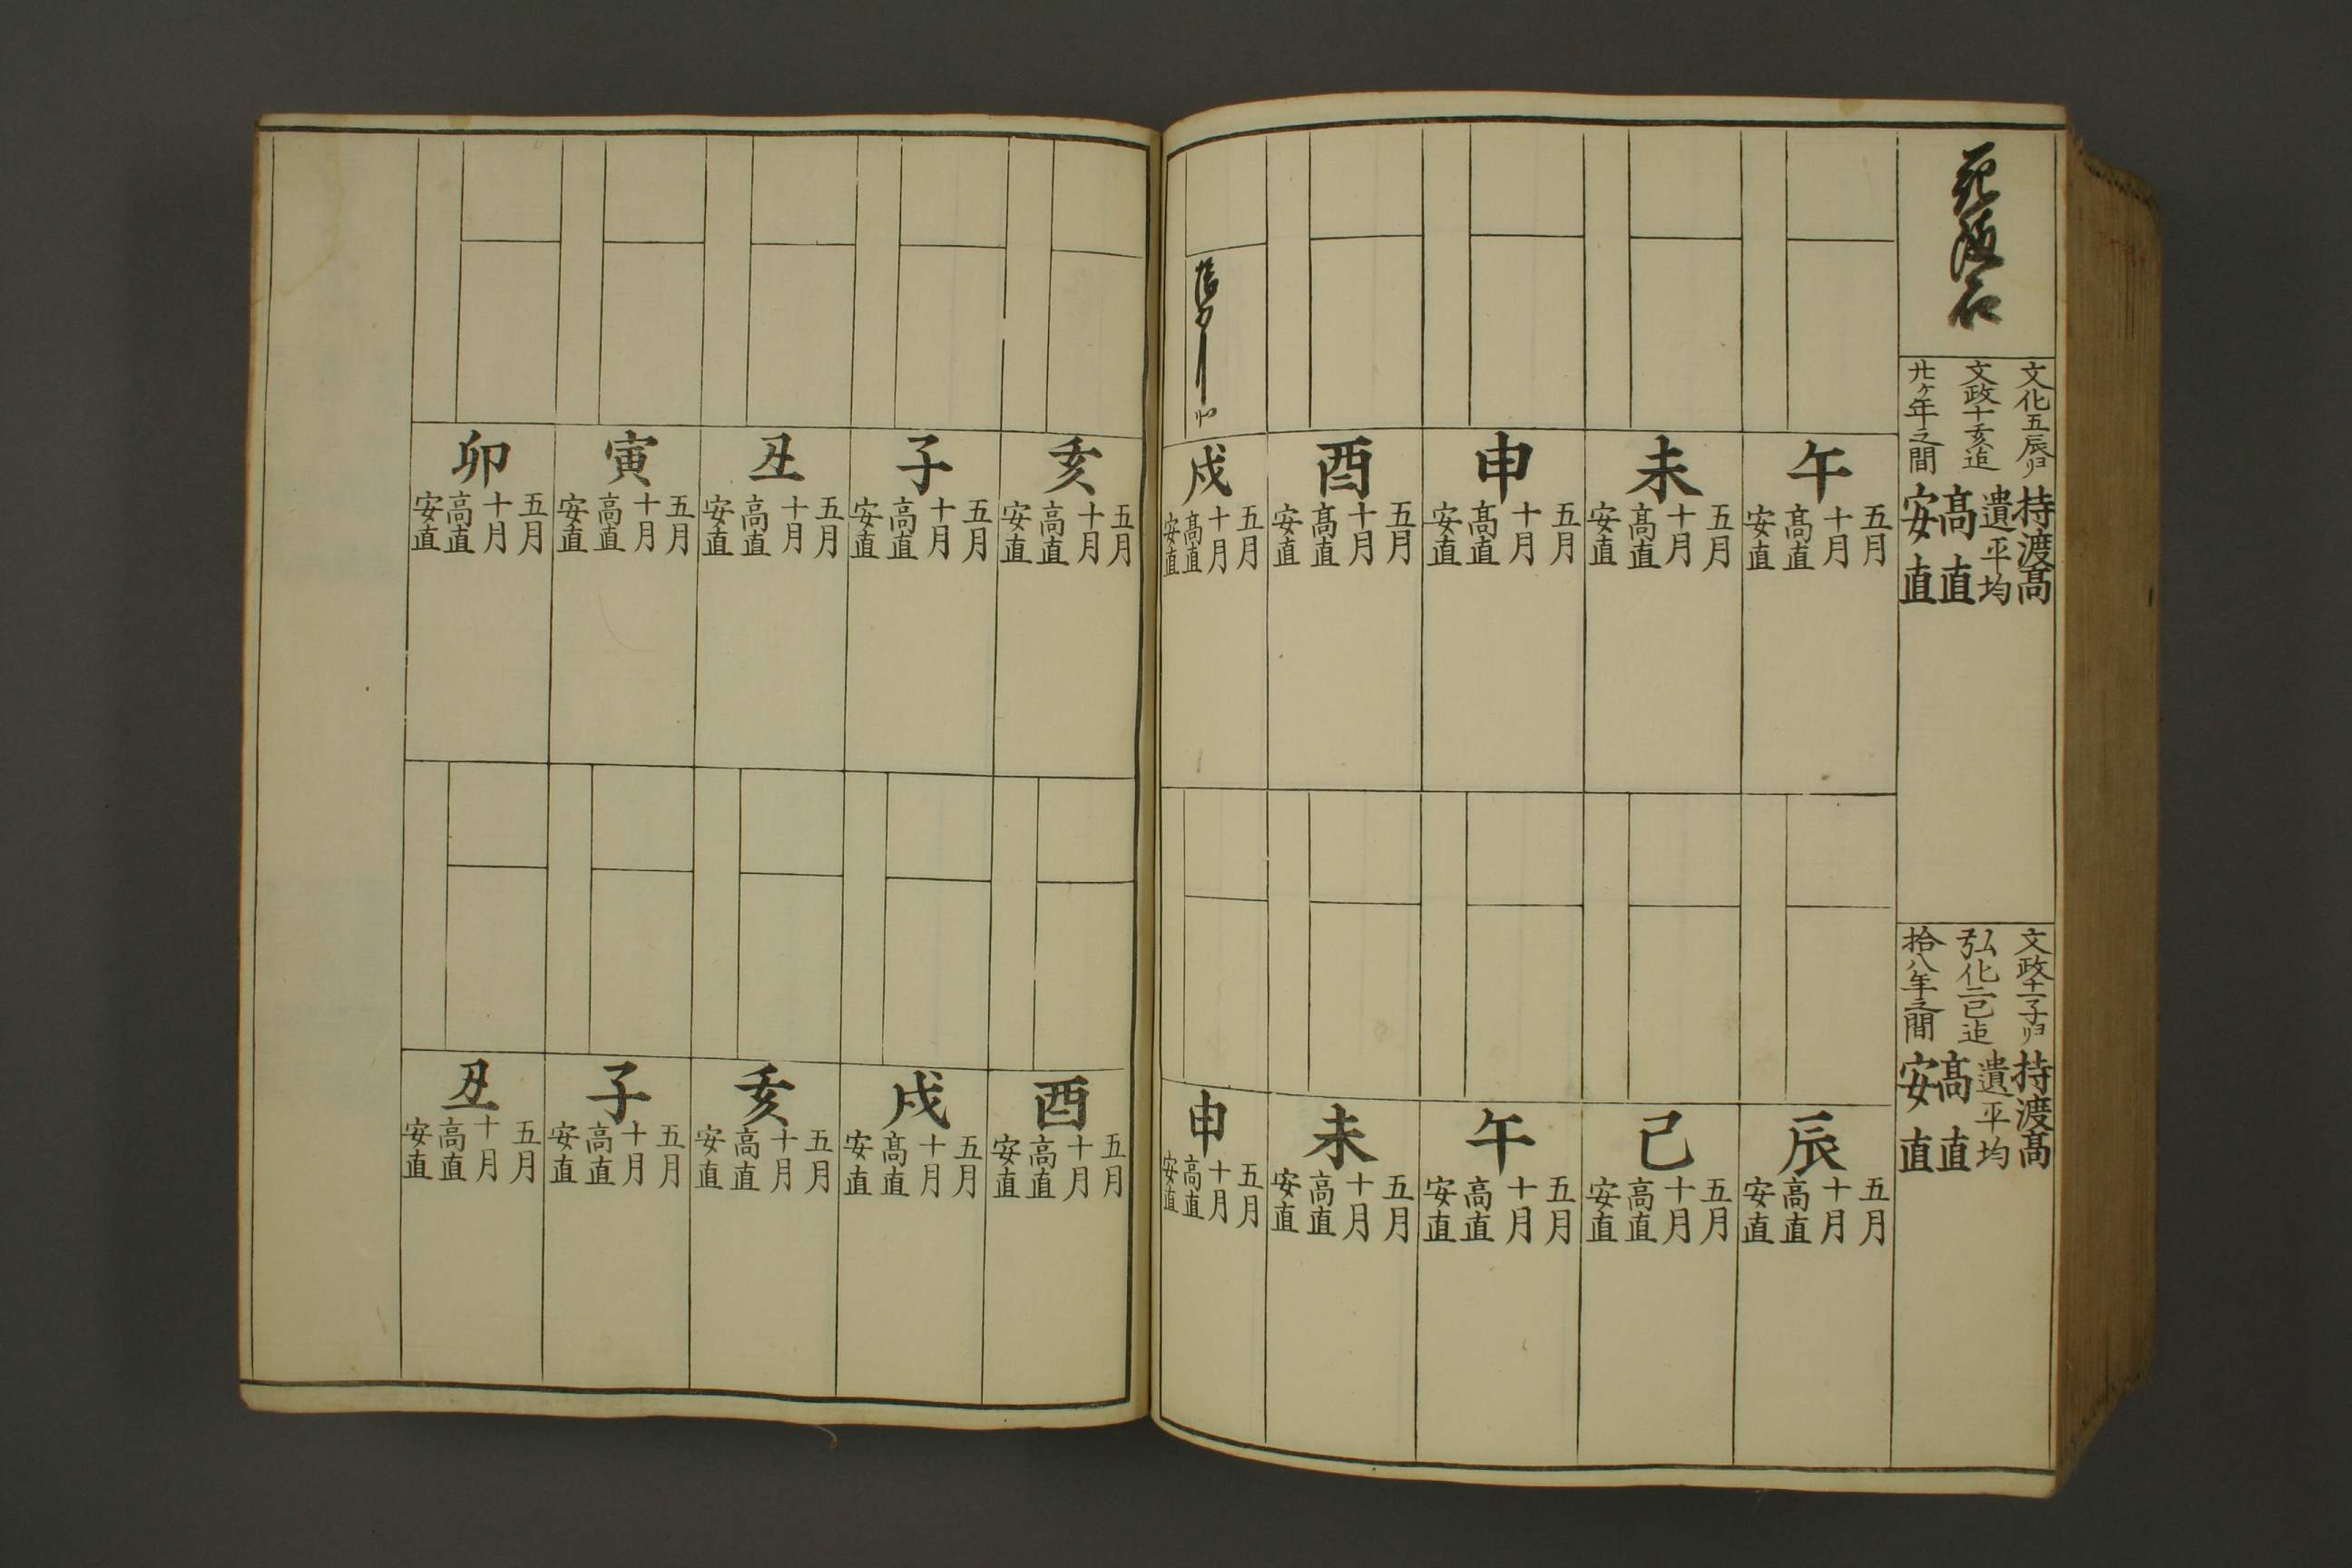 文化五辰ヨリ
文政十亥迄
廿ケ年之間
持渡高
遣平均
高直
安直
文政十一子ヨリ
弘化二巳迄
拾八年之間
持渡高
遣平均
高直
安直
午
五月
十月
高直
安直
未
五月
十月
高直
安直
申
五月
十月
高直
安直
酉
五月
十月
高直
安直
戌
五月
十月
高直
安直
辰
五月
十月
高直
安直
巳
五月
十月
高直
安直
午
五月
十月
高直
安直
未
五月
十月
高直
安直
申
五月
十月
高直
安直
亥
五月
十月
高直
安直
子
五月
十月
高直
安直
丑
五月
十月
高直
安直
寅
五月
十月
高直
安直
卯
五月
十月
高直
安直
酉
五月
十月
高直
安直
戌
五月
十月
高直
安直
亥
五月
十月
高直
安直
子
五月
十月
高直
安直
丑
五月
十月
高直
安直